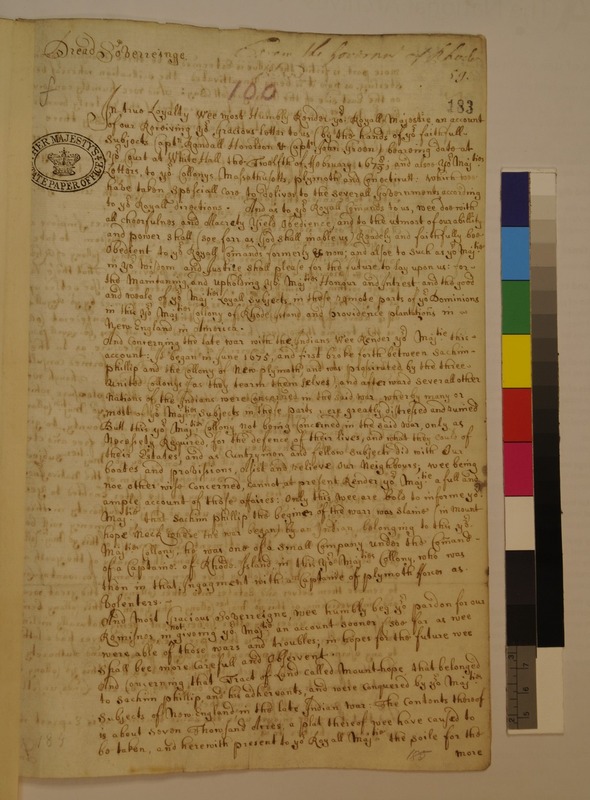 Dread Soverreinge
From the Governor of Rhode
59.
160
183
HER MAJESTY'S
STATE PAPER OFFICE
In true Loyalty Wee most Humbly Render yor Royall Majestie an account
of our Receiving yor Gracious Letter to us (by the hands of yor faithfull
Subjects Capt Randall Howldon & Capt John Green) bearing date at
yor Court at White Hall, the Twelfth of February 1678/9, and alsoe yor Majties
Letters, to yor Collonys, Massathusetts, plymoth and Conetticutt. which wee
have taken Speciall Care, to deliver to the Severall Governments according
to yor Royall directions. And as to yor Royall Comands to us, wee doe with
all cheerfulness and allacrety yield obedience, and to the utmost of our abillity
and power shall (soe farr as God shall inable us) Readely and faithfully bee
obedient to yor Royall Comands formerly & now; and alsoe to Such as yor Majtie
in yor Wisdom and Justice shall please for the future to lay upon us: for
the Maintaning and upholding yor Majties Honour and Intrest and the good
and weale of yor Majties Loyall Subjects, in these Remote parts of yor Dominions
in this yor Majties Collony of Rhode Island and providence plantations in
New England in America.
And concerning the late war with the Indians Wee Render yor Majtie this
account: yt began in June 1675, and first brake forth between Sachim
phillip and the Collony of New plymoth and was prosecuted by the three
united Collonys (as they tearm themselves) and afterward Severall other
Nations of the Indians were concerned in the said war, whereby many or
most of yor Majties Subjects in these parts were greatly distressed and ruined
But this yor Majties Collony not being concerned in the said war, only as
Necesity Required, for the defence of their lives, and what they could of
their Estates, and as Cuntrymen and fellow Subjects did with our
boates and provissions, assist and relieve our Neighbours; wee being
noe other wise Concerned, cannot at present Render yor Majtie a full and
ample account of those affaires: Only this wee are bold to informe yor
Majtie that Sachim phillip the beginer of the warr was slaine in Mount
hope Neck where the war began, by an Indian belonging to this yor
Majties Collony, who was one of a Small Company under the Comand
of a Captaine of Rhode Island in this yor Majties Collony, who was
then in that Ingagment with a Captaine of plymoth
Volenters.
And Most Gracious Sovereigne, wee humbly beg yor pardon for our
Remisnes in not giving yor Majtie an account sooner, soe far as wee
were able of those wars and troubles; in hopes for the future wee
shall bee more Carefull and Observent.
And concerning that Tract of Land called Mounthope that belonged
to Sachim phillip and his adherants, and were Conquered by yor Majties
Subjects of New England in the late Indian War. The Contents thereof
is about Seven Thousand Acres, a plat thereof wee have caused to
be taken, and herewith present to yor Royall Majtie the soile for the
more